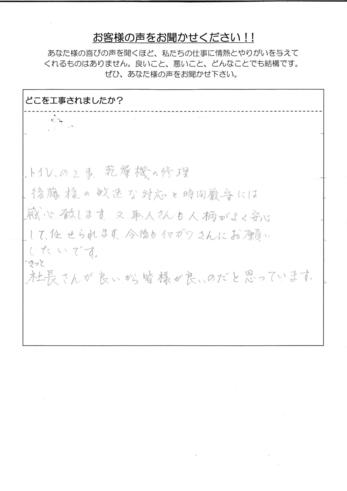 お客様の声をお聞かせください！！
あなた様の喜びの声を聞くほど、私たちの仕事に情熱とやりがいを与えて
くれるものはありません。良いこと、悪いこと、どんなことでも結構です。
ぜひ、あなた様の声をお聞かせ下さい。
どこを工事されましたか？
トイレの工事、乾燥機の修理
後藤様の敏速な対応と時間厳守には
感心致します 又職人さんも人柄がよく安心
して、任せられます。今後も さんにお願い
したいです。
きっと
社長さんが良いから皆様が良いのだと思っています。